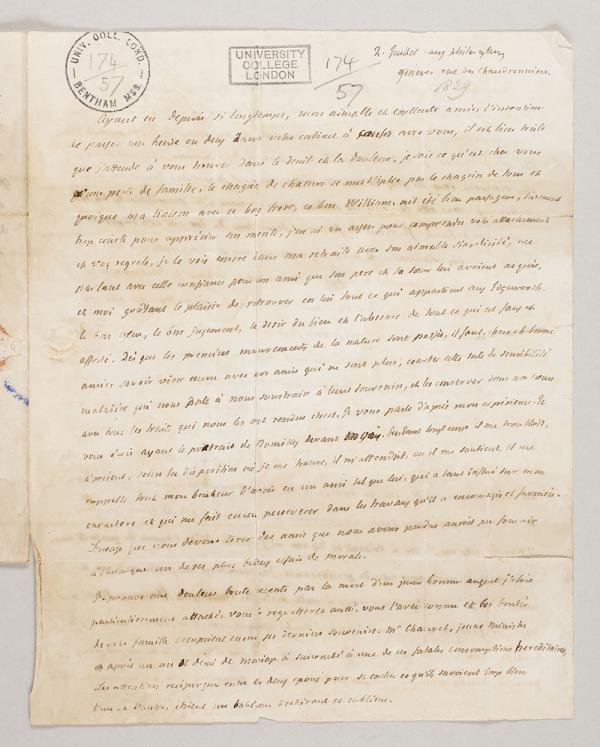 UNIV. COLL. LOND.
174
57
BENTHAM MSS.
UNIVERSITY
COLLEGE
LONDON
174
57
Genève rue des Chaudronniers
1829
Ayant eu depuis si longtemps, mon aimable et excellente amie, l'intention
de passer une heure ou deux dans votre cabinet à causer avec vous, il est bien triste
que j'attende à vous trouver dans le deuil et la douleur, je sais ce qu'est chez vous
qu'une perte de famille, le chagrin de chacun se multiplie par le chagrin de tous et
quoique ma liaison avec ce bon frère, ce bon William, ait été bien passagère, surement
trop courte pour apprécier son mérite, j'en ai vu assez pour comprendre votre attachement
et vos regrets, je le vois encore dans ma retraite avec son aimable simplicité, me
parlant avec cette confiance pour un ami que son père et sa sœur lui avoient acquis,
et moi goûtant le plaisir de retrouver en lui tout ce qui appartient aux Edgeworth
le bon cœur, le bon jugement, le desir du bien et l'absence de tout ce qui est faux et
affecté. Dès que les premiers mouvemens de la nature sont passés, il faut, chere et bonne
amie, savoir vivre encore avec nos amis qui ne sont plus, écarter cette sorte de sensibilité
maladive qui nous porte à nous soustraire à leurs souvenirs, et les conserver dans nos cœurs
avec tous les traits qui nous les ont rendus chers. Je vous parle d'après mon expérience. Je
vous écris ayant le portrait de Romilly devant mes yeux. Pendant longtemps il me troubloit,
à présent, selon la disposition où je me trouve, il m'attendrit ou il me soutient, il me
rappelle tout mon bonheur d'avoir eu un ami tel que lui, qui a tant influé sur mon
caractère et qui me fait encore persévérer dans les travaux qu'il a encouragés et
L'usage que nous devons tirer des amis que nous avons perdus auroit pu fournir
à Plutarque un de ses plus beaux essais de morale.
J'éprouve une douleur toute recente par la mort d'un jeune homme auquel j'étois
particulièrement attaché, vous le regretterez aussi, vous l'avez connu et les bontés
de votre famille occupoient encore ses derniers souvenirs. Mr Chauvet, jeune Ministre
après un an et demi de mariage a succombé à une de ces fatales consomptions héréditaires,
Les attentions réciproques entre les deux epoux pour se cacher ce qu'ils savoient trop bien
l'un et l'autre, étoient un tableau déchirant et sublime.